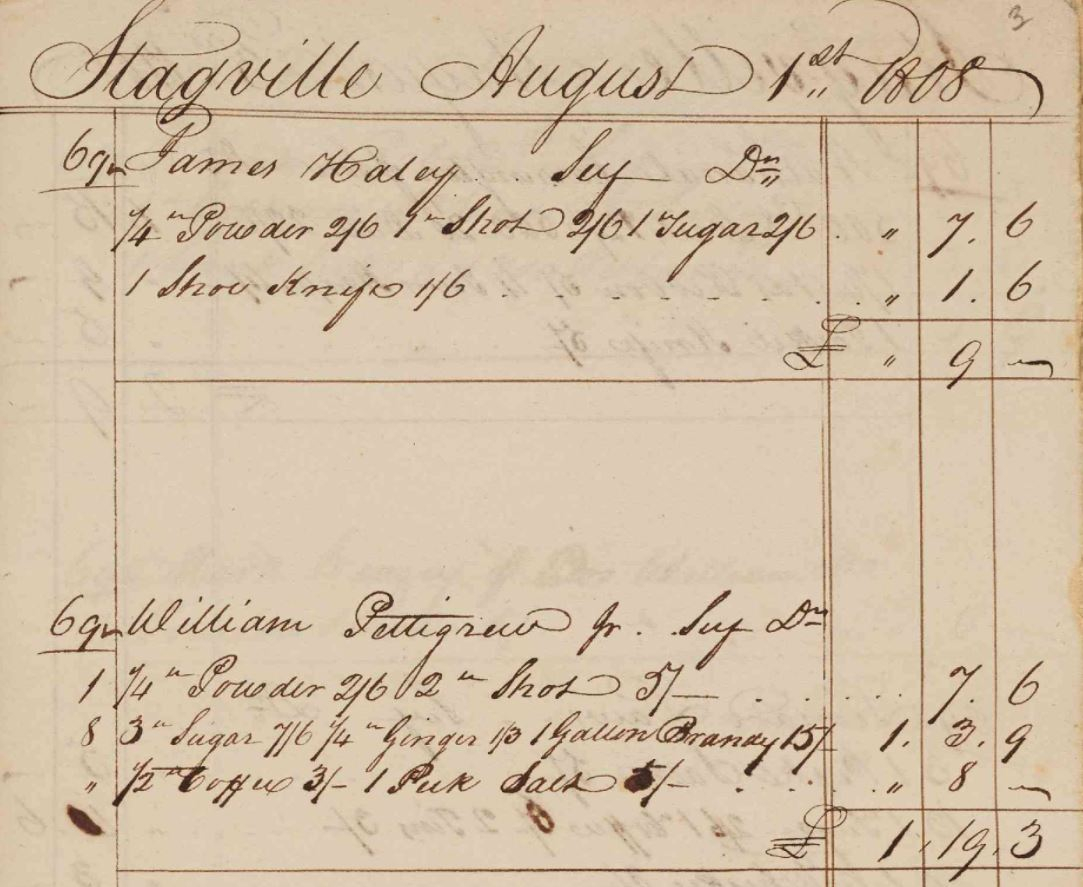 3
Stagville August 1st 1808
69 James Haley Self Dr
1/4 " Powder 2/6 1 " Shot 2/6 1 Sugar 2/6 . " 7. 6
1 Shoe Knife 1/6 . . . . . . . . " 1. 6
£ " 9 —
69 William Pettigrew Jr. Self Dr
1 1/4 " Powder 2/6 2 " Shot 5/— . . . . . . 7. 6
8 3 " Sugar 7/6 1/4 " Ginger 1/3 1 Gallon Brandy 15/ 1. 3. 9
" 1/2 " Coffee 3/— 1 Peck Salt 5/— . . . . " 8 —
£ 1. 19. 3